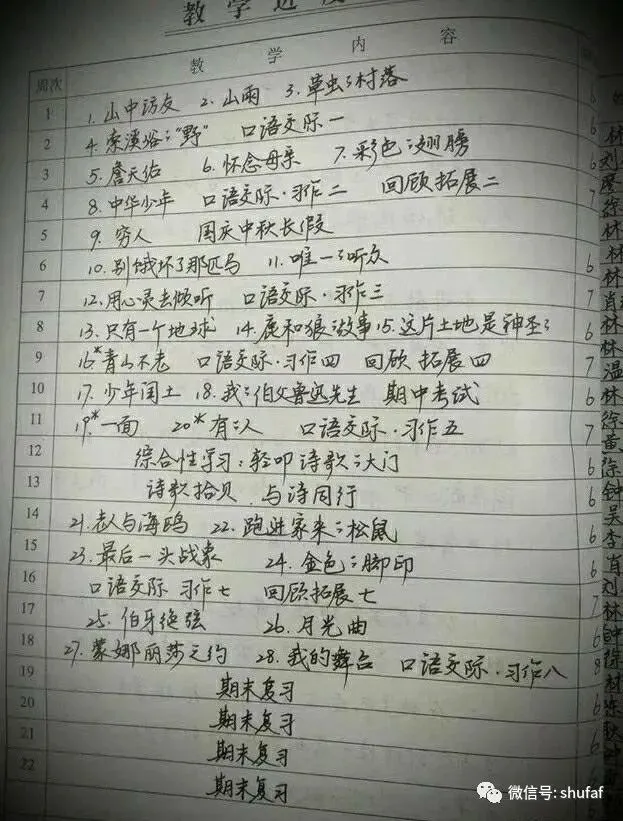 教学进度
周次 教学内容
1 1.山中访友 2.山雨 3.草虫的村落 6
2 4.索溪峪的"野" 口语交际一 6
3 5.詹天佑 6.怀念母亲 7.彩色的翅膀 7
4 8.中华少年 口语交际·习作二 回顾拓展二
5 9.穷人 国庆中秋长假
6 10.别饿坏了那匹马 11.唯一的听众 6
7 12.用心灵去倾听 口语交际·习作三 7
8 13.只有一个地球 14.鹿和狼的故事 15.这片土地是神圣的 6
9 16*青山不老 口语交际·习作四 回顾拓展四 7
10 17.少年闰土 18.我的伯父鲁迅先生 期中考试 6
11 19.*一面 20*有的人 口语交际·习作五 7
12 综合性学习:轻叩诗歌的大门 6
13 诗歌拾贝 与诗同行 6
14 21.老人与海鸥 22.跑进家来的松鼠 6
15 23.最后一头战象 24.金色的脚印 6
16 口语交际 习作七 回顾拓展七 7
17 25.伯牙绝弦 26.月光曲 6
18 27.蒙娜丽莎之约 28.我的舞台 口语交际·习作八 8
19 期末复习 6
20 期末复习 6
21 期末复习 6
22 期末复习 6
微信号: shufaf